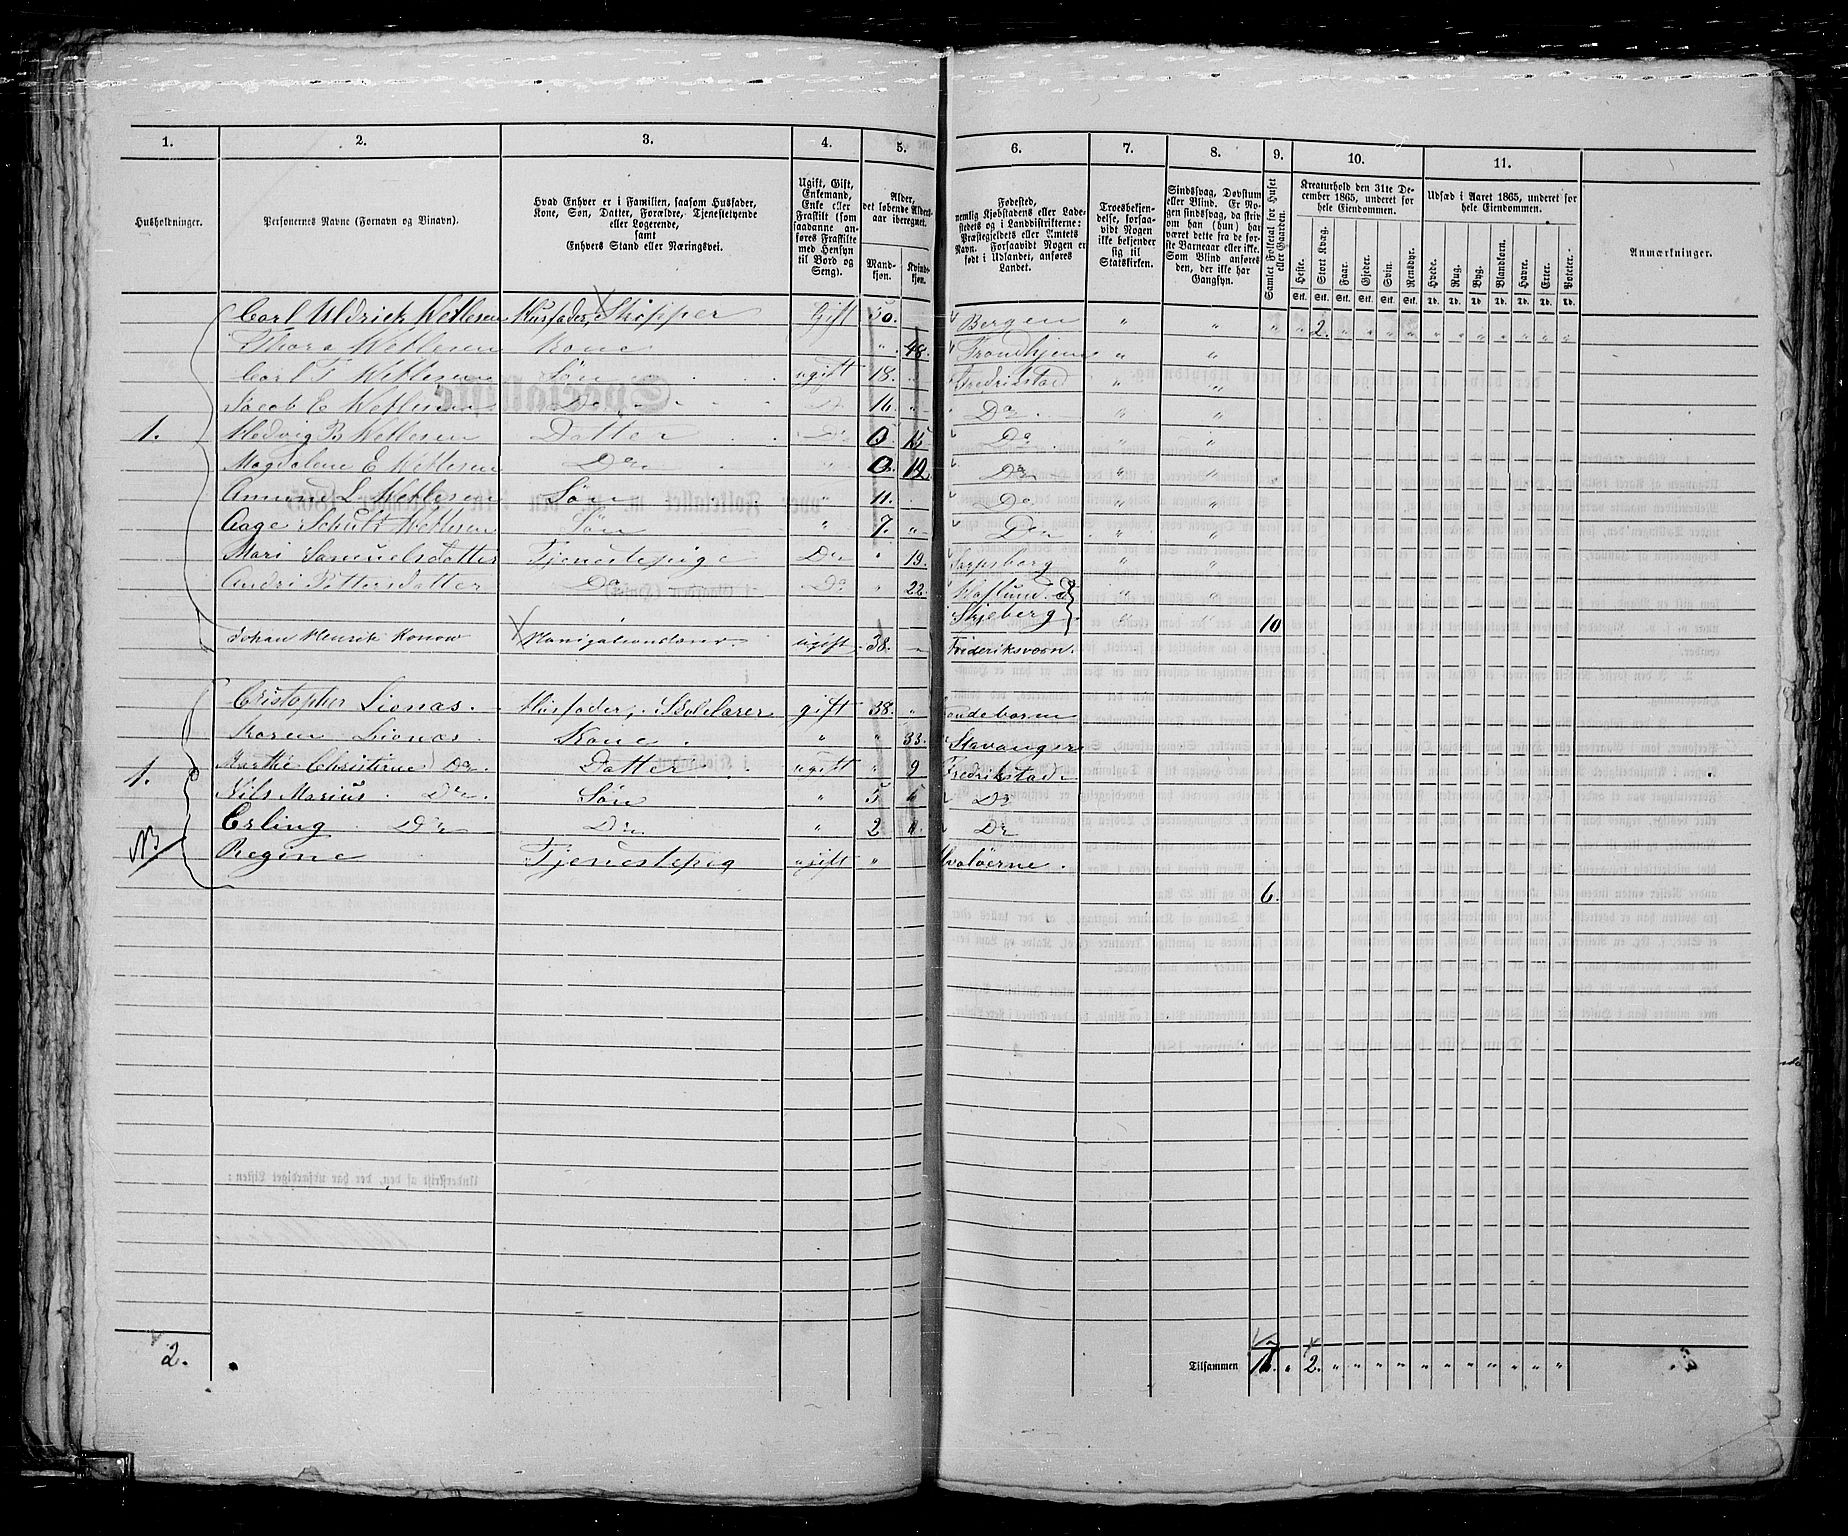 1. 2. 3. 4. 5. 6. 7. 8. 9. 10. 11.
Husholdninger.
Personernes Navne (Fornavn og Binavn).
Hvad Enhver er i Familien, saasom Husfader,
Kone, Søn, Datter, Forældre, Tjenestetyende
eller Logerende,
samt
Enhvers Stand eller Næringsvei.
Ugift, Gift,
Enkemand,
Enke eller
Fraskilt (som
saadanne an-
føres Fraskilte
med Hensyn
til Bord og
Seng).
Alder,
det løbende Alders-
aar iberegnet.
Mand-
kjøn.
Kvinde-
kjøn.
Fødested,
nemlig Kjøbstadens eller Lade-
stedets og i Landdistrikterne:
Præstegjeldets eller Amtets
Navn. Forsaavidt Nogen er
født i Udlandet, anføres
Landet.
Troesbekjen-
delse, forsaa-
vidt Nogen
ikke bekjender
sig til
Statskirken.
Sindssvag, Døvstum
eller Blind. Er No-
gen sindssvag, da skriv
om han (hun) har
været dette fra de før-
ste Barneaar eller ikke.
Som Blind anføres
den, der ikke har
Gangsyn.
Samlet Folketal for Huset
eller Gaarden.
Kreaturhold den 31te De-
cember 1865, underet for
hele Eiendommen.
Heste. Stort Kvæg. Faar. Gjeder. Svin. Rensdyr.
Stk. Stk. Stk. Stk. Stk. Stk.
Udsæd i Aaret 1865, underet for
hele Eiendommen.
Hvede. Rug. Byg. Blandkorn. Havre. Erter. Poteter.
Td. Td. Td. Td. Td. Td. Td.
Anmærkninger.
Carl Uldrick Wetlesen Husfader, Skipper Gift 50. " Bergen " " " " 2. " " " " " " " " " " "
Thora Wetlesen Kone " 48. Trondhjem " "
Carl T Wetlesen Søn ugift 18. Fredrikstad " "
Jacob E Wetlesen Do Do 16. " Do " "
1. Hedvig B Wetlesen Datter Do 0 15 Do " "
Magdalene E Wetlesen Do " 0 12 Do " "
Amund L Wetlesen Søn " 11. Do " "
Aage Schult Wetlesen Søn " 7. " Do " "
Mari Samuelsdatter Tjenestepige Do " 19. Sarpsborg " "
Andri Pettersdatter Do Do " 22. Haflund
Skjeberg " " 10
Johan Henrik Konow Navigationslærer ugift 38. " Frideriksværn.
Cristopher Lionæs. Husfader, Skolelærer gift 38. "
Karen Lionæs Kone. " " 33. Stavanger
1. Marthe Christine Do. Datter ugift " 9 Fredrikstad
Nils Marius. Do. Søn " 5 " Do
Erling Do Do " 2 " Do
NB Regine Tjenestepig ugift " Hvaløerne.
6.
2.
Tilsammen 16. " 2. " " " " " " " " " " "